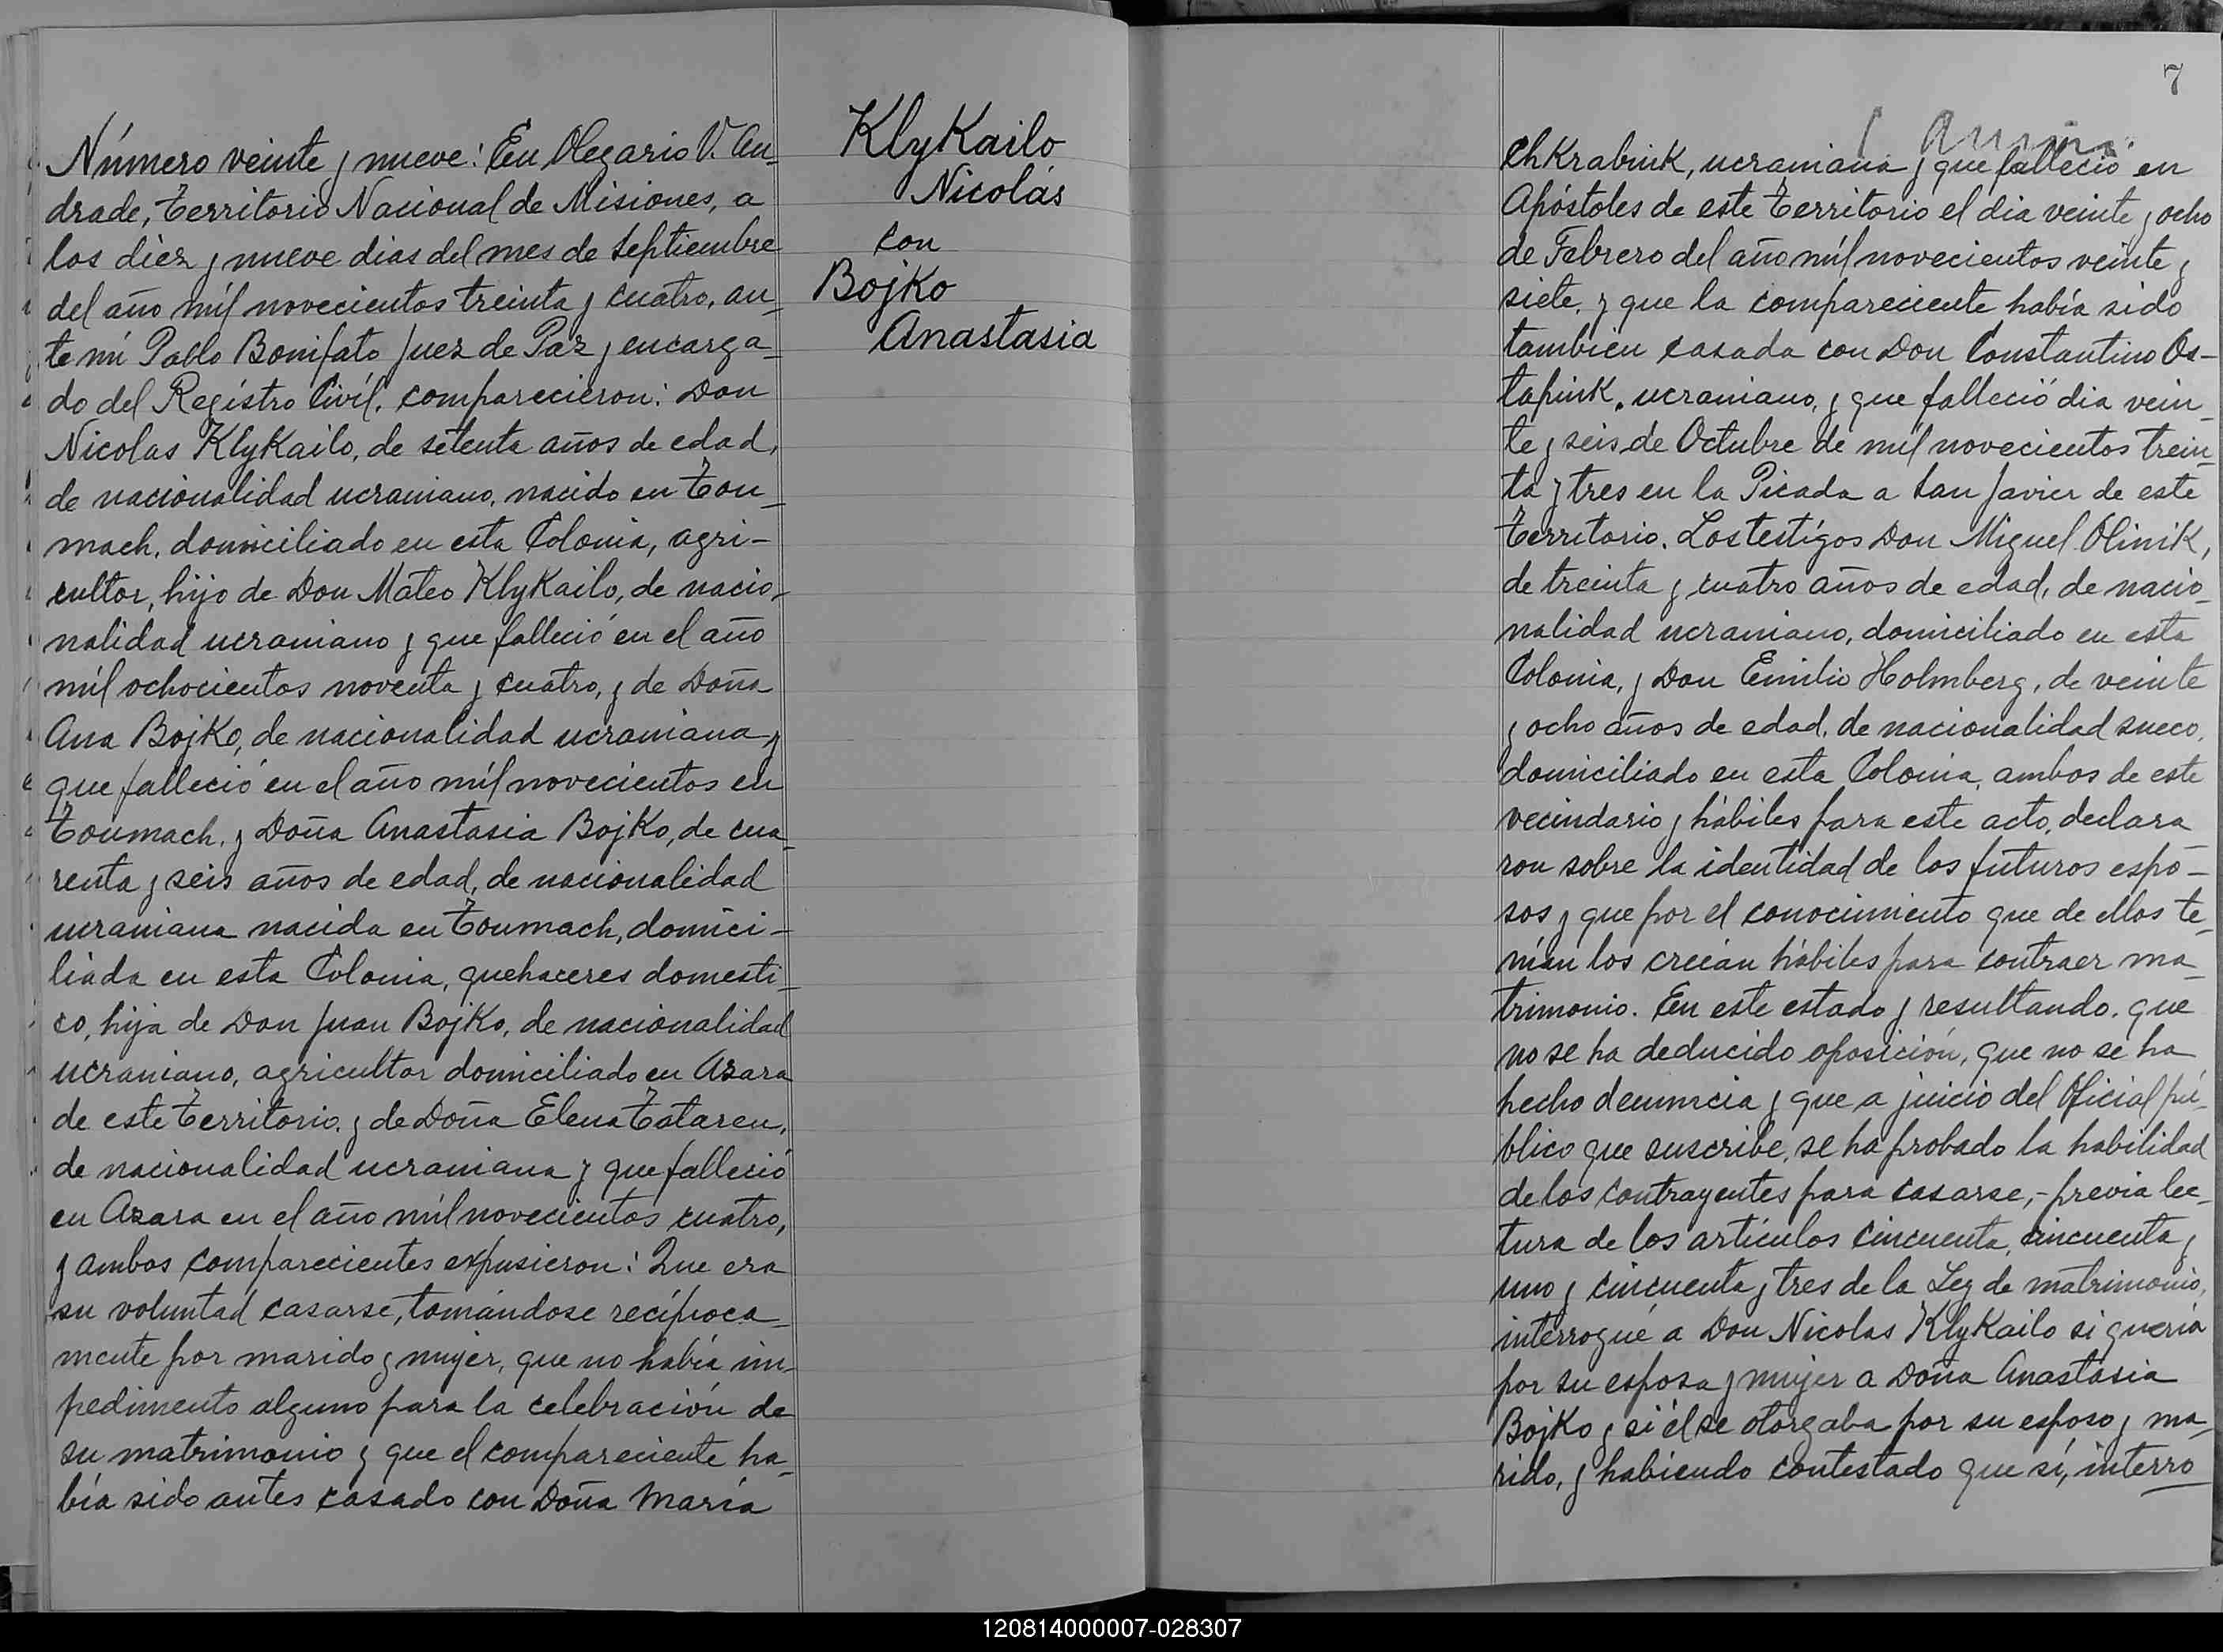 Número veinte y nueve: En Olegario V. An-
drade, Territorio Nacional de Misiones, a
los diez y nueve dias del mes de Septiembre
del año mil novecientos treinta y cuatro, an-
te mi Pablo Bonifato Juez de Paz y encarga-
do del Registro Civil, comparecieron: Don
Nicolas KlyKailo, de setenta años de edad,
de nacionalidad ucraniano, nacido en Tou-
mach, domiciliado en esta Colonia, agri-
cultor, hijo de Don Mateo KlyKailo, de nacio-
nalidad ucraniano y que falleció en el año
mil ochocientos noventa y cuatro, y de Doña
Ana BojKo, de nacionalidad ucraniana y
que falleció en el año mil novecientos en
Toumach, y Doña Anastasia BojKo, de cua-
renta y seis años de edad, de nacionalidad
ucraniana nacida en Toumach, domici-
liada en esta Colonia, quehaceres domesti-
co, hija de Don Juan BojKo, de nacionalidad
ucraniano, agricultor domiciliado en Azara
de este Territorio, y de Doña Elena Tataren,
de nacionalidad ucraniana y que falleció
en Azara en el año mil novecientos cuatro,
y ambos comparecientes expusieron: Que era
su voluntad casarse, tomándose recíproca-
mente por marido y mujer, que no había im-
pedimento alguno para la celebración de
su matrimonio y que el compareciente ha-
bía sido antes casado con Doña María
KlyKailo
Nicolás
con
BojKo
Anastasia
7
ChKrabiuk, ucraniana y que falleció en
Apóstoles de este Territorio el dia veinte y ocho
de Febrero del año mil novecientos veinte y
siete, y que la compareciente había sido
tambien casada con Don Constantino Os-
tapiuk, ucraniano, y que falleció dia vein-
te y seis de Octubre de mil novecientos trein-
ta y tres en la Picada a San Javier de este
Territorio. Los testigos Don Miguel Olinik,
de treinta y cuatro años de edad, de nacio-
nalidad ucraniano, domiciliado en esta
Colonia, y Don Emilio Holmberg, de veinte
y ocho años de edad, de nacionalidad sueco,
domiciliado en esta Colonia, ambos de este
vecindario y hábiles para este acto, declara-
ron sobre la identidad de los futuros espo-
sos y que por el conocimiento que de ellos te-
nían los creían hábiles para contraer ma-
trimonio. En este estado y resultando, que
no se ha deducido oposición, que no se ha
hecho denuncia y que a juicio del Oficial pú-
blico que suscribe, se ha probado la habilidad
de los contrayentes para casarse, - previa lec-
tura de los artículos cincuenta, cincuenta y
uno y cincuenta y tres de la Ley de matrimonio,
interrogué a Don Nicolas KlyKailo si quería
por su esposa y mujer a Doña Anastasia
BojKo y si él se otorgaba por su esposo y ma-
rido, y habiendo contestado que sí, interro
120814000007-028307